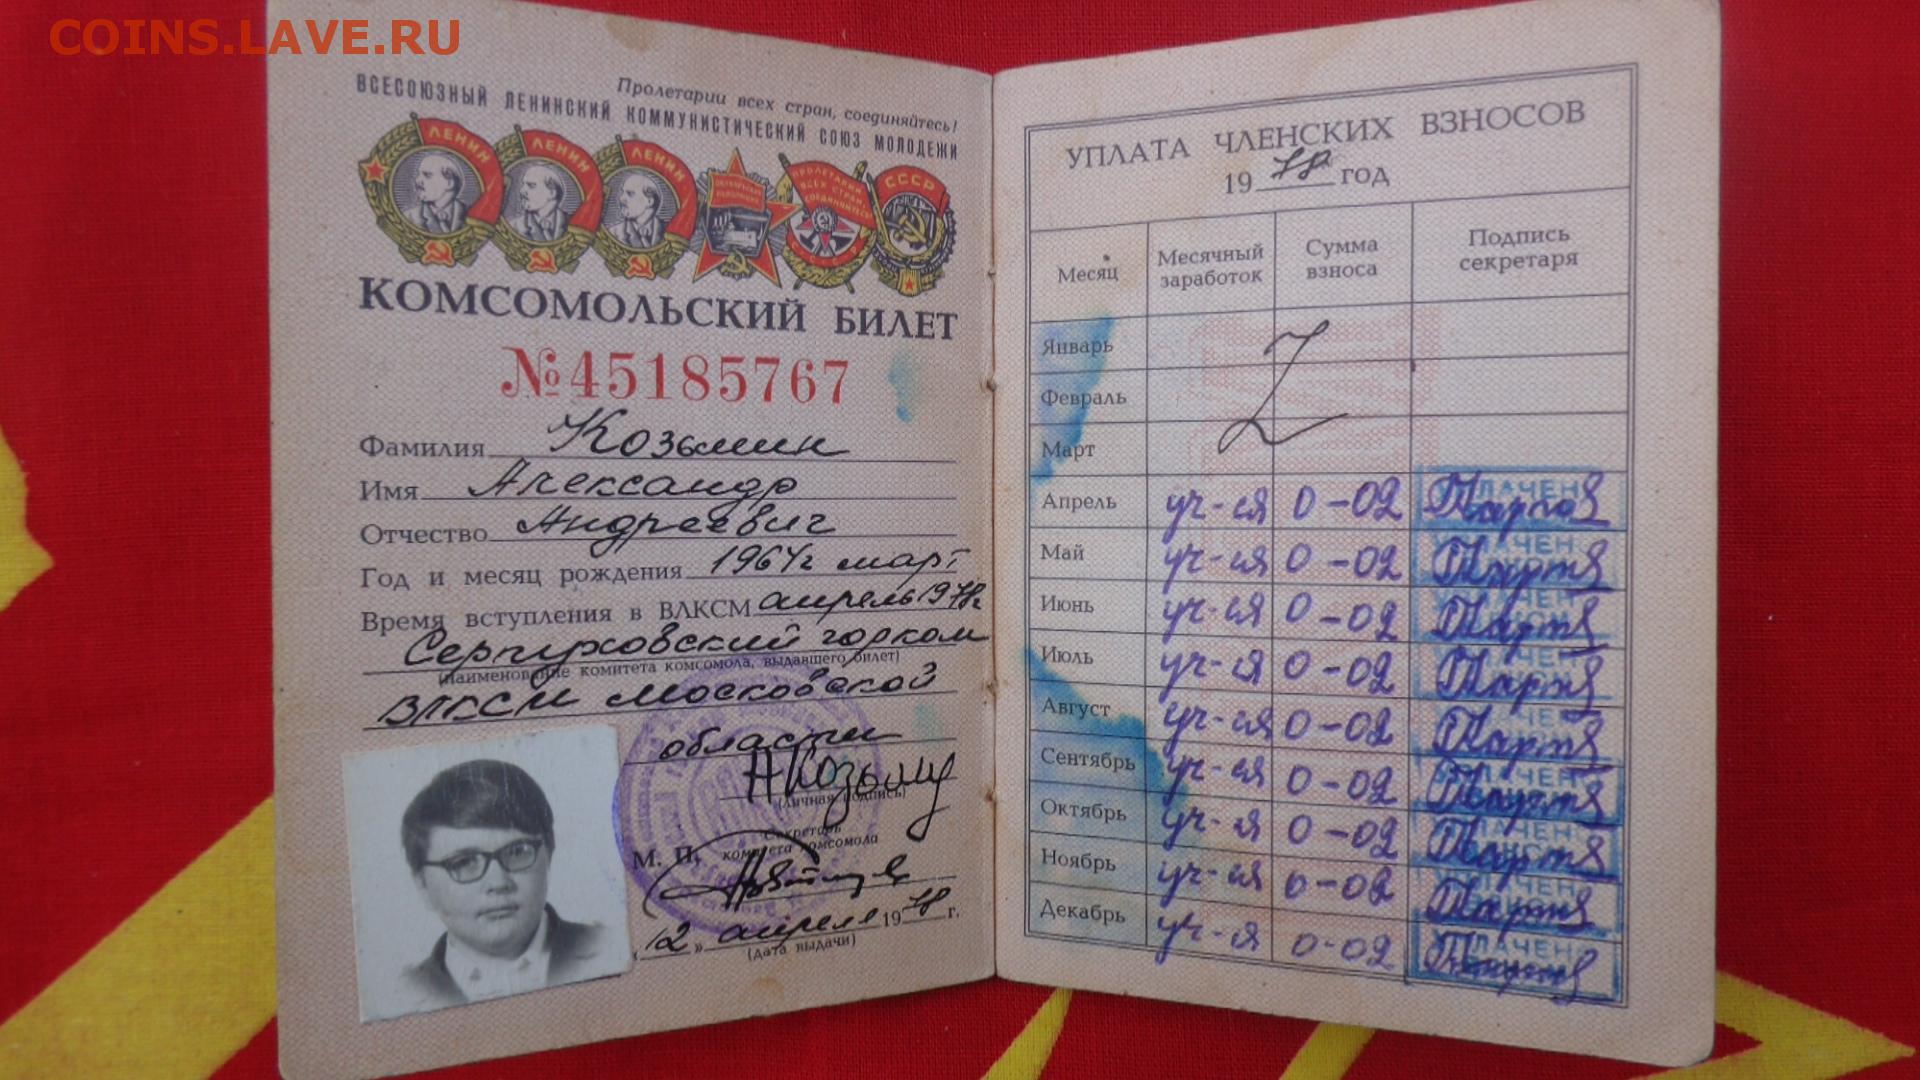 COINS.LAVE.RU
Пролетарии всех стран, соединяйтесь!
ВСЕСОЮЗНЫЙ ЛЕНИНСКИЙ КОММУНИСТИЧЕСКИЙ СОЮЗ МОЛОДЕЖИ
ЛЕНИН ЛЕНИН ЛЕНИН ПРОЛЕТАРИИ ВСЕХ СТРАН, СОЕДИНЯЙТЕСЬ СССР
КОМСОМОЛЬСКИЙ БИЛЕТ
№45185767
Фамилия Козьмин
Имя Александр
Отчество Андреевич
Год и месяц рождения 1964г март
Время вступления в ВЛКСМ апрель 1978г
Серпуховский горком
(наименование комитета комсомола, выдавшего билет)
ВЛКСМ Московской
области
АКозьми
(личная подпись)
Секретарь
М. П. комитета комсомола
«12» апреля 1978 г.
(дата выдачи)
УПЛАТА ЧЛЕНСКИХ ВЗНОСОВ
1978 год
Месяц Месячный заработок Сумма взноса Подпись секретаря
Январь
Февраль
Март
Апрель уч-ся 0-02
Май уч-ся 0-02
Июнь уч-ся 0-02
Июль уч-я 0-02
Август уч-ся 0-02
Сентябрь уч-ся 0-02
Октябрь уч-я 0-02
Ноябрь уч-ся 0-02
Декабрь уч-я 0-02